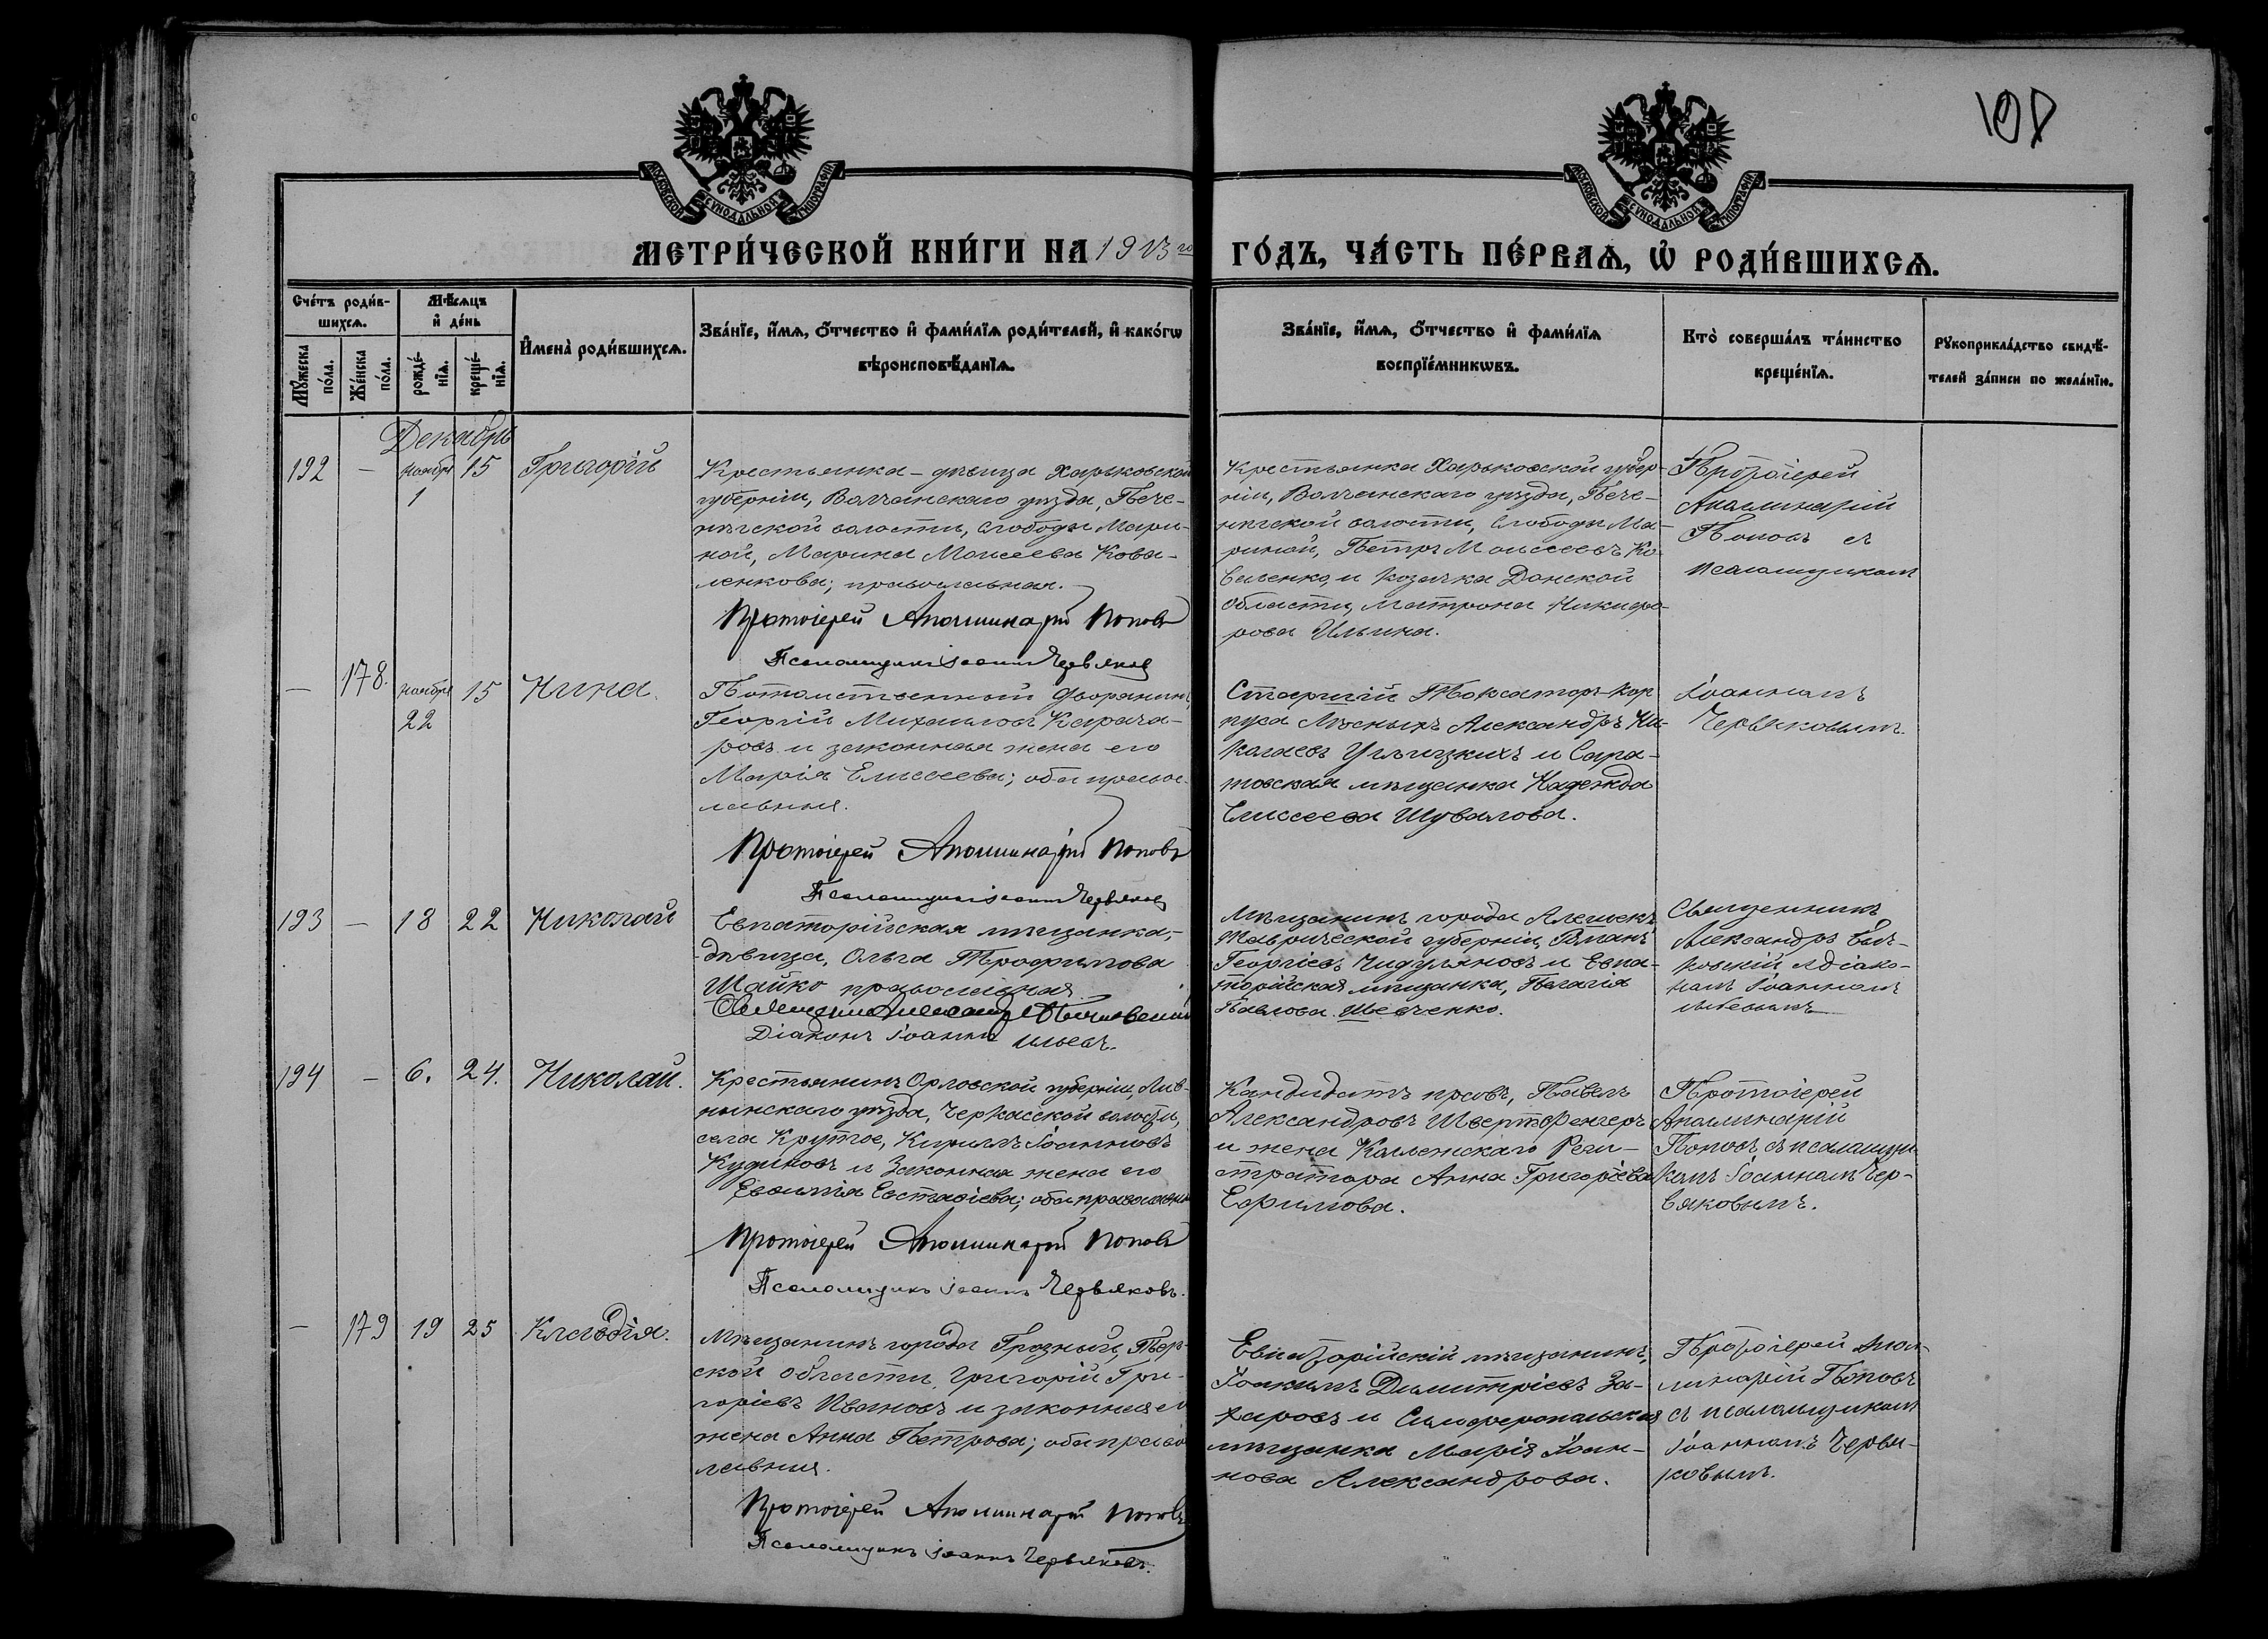 108
МОСКОВСКОЙ СѴНОДАЛЬНОЙ ТИПОГРАФІИ
МОСКОВСКОЙ СѴНОДАЛЬНОЙ ТИПОГРАФІИ
МЕТРИ́ЧЕСКОЙ КНИ́ГИ НА 1913 го ГО́ДЪ, ЧА́СТЬ ПЕ́РВАѦ, Ѽ РОДИ́ВШИХСѦ.
Сче́тъ роди́в-
шихсѧ.
Мѣ́сѧцъ
и҆ де́нь
Мꙋ́жеска
по́ла.
Же́нска
по́ла.
рожде́-
нїѧ.
креще́-
нїѧ.
И҆мена̀ роди́вшихсѧ.
Зва́нїе, и҆́мѧ, ѻ҆́тчество и҆ фами́лїѧ роди́телей, и҆ како́гѡ
вѣроисповѣ́данїѧ.
Зва́нїе, и҆́мѧ, ѻ҆́тчество и҆ фами́лїѧ
воспрїе́мникѡвъ.
Кто̀ соверша́лъ та́инство
креще́нїѧ.
Рꙋкоприкла́дство свидѣ́-
телей за́писи по жела́нїю.
Декабрь
192 — ноября 1 15 Григорій
Крестьянка-дѣвица Харьковской
губерніи, Волчанскаго уѣзда, Пече-
нѣгской волости, слободы Мари-
ной, Марина Моисеева Кова-
ленкова; православная.
Протоіерей Аполлинарій Поповъ
Псаломщикъ Іоаннъ Червяковъ
Крестьянка Харьковской губер-
ніи, Волчанскаго уѣзда, Пече-
нѣгской волости, слободы Ма-
риной, Петръ Моисеевъ Ко-
валенко, и козачка Донской
области, Матрона Никифо-
рова Ильина.
Протоіерей
Аполлинарій
Поповъ съ
псаломщикомъ
— 178. ноября 22 15 Нина.
Потомственный дворянинъ
Георгій Михаиловъ Карача-
ровъ и законная жена его
Марія Елисеева; оба право-
славные.
Протоіерей Аполлинарій Поповъ
Псаломщикъ Іоаннъ Червяковъ
Старшій Таксаторъ Кор-
пуса Лѣсныхъ Александръ Ни-
колаевъ Угличскихъ и Сара-
товская мѣщанка Надежда
Елисеева Шувалова.
Іоанномъ
Червяковымъ.
193 — 18 22 Николай
Евпаторійская мѣщанка,-
-дѣвица, Ольга Трофимова
Шайко православная
Священникъ Александръ
Діаконъ Іоаннъ Ильевъ.
Мѣщанинъ города Алешекъ
Таврической губерніи,
Георгіевъ Чидуляновъ и Евпа-
торійская мѣщанка, Пелагія
Павлова Шевченко.
Священникъ
Александръ
съ діако-
номъ Іоанномъ
194 — 6. 24. Николай.
Крестьянинъ Орловской губерніи, Лив-
нынскаго уѣзда, Черкасской волости,
села Крутое, Кириллъ Іоанновъ
Кудиновъ и законная жена его
Евфимія Евстафіева; оба православные
Протоіерей Аполлинарій Поповъ
Псаломщикъ Іоаннъ Червяковъ.
Кандидатъ правъ, Павелъ
Александровъ Швертфенгеръ
и жена Коллежскаго Реги-
стратора Анна Григоріева
Ефимова.
Протоіерей
Аполлинарій
Поповъ съ псаломщи-
комъ Іоанномъ Чер-
вяковымъ.
— 179 19 25 Клавдія.
Мѣщанинъ города Грозный, Тер-
ской области, Григорій Гри-
горіевъ Ивановъ и законная его
жена Анна Петрова; оба право-
славные.
Протоіерей Аполлинарій Поповъ
Псаломщикъ Іоаннъ Червяковъ.
Евпаторійскій мѣщанинъ,
Іоакимъ Димитріевъ За-
харовъ и Симферопольская
мѣщанка Марія Іоан-
нова Александрова.
Протоіерей Апол-
линарій Поповъ
съ псаломщикомъ
Іоанномъ Червя-
ковымъ.